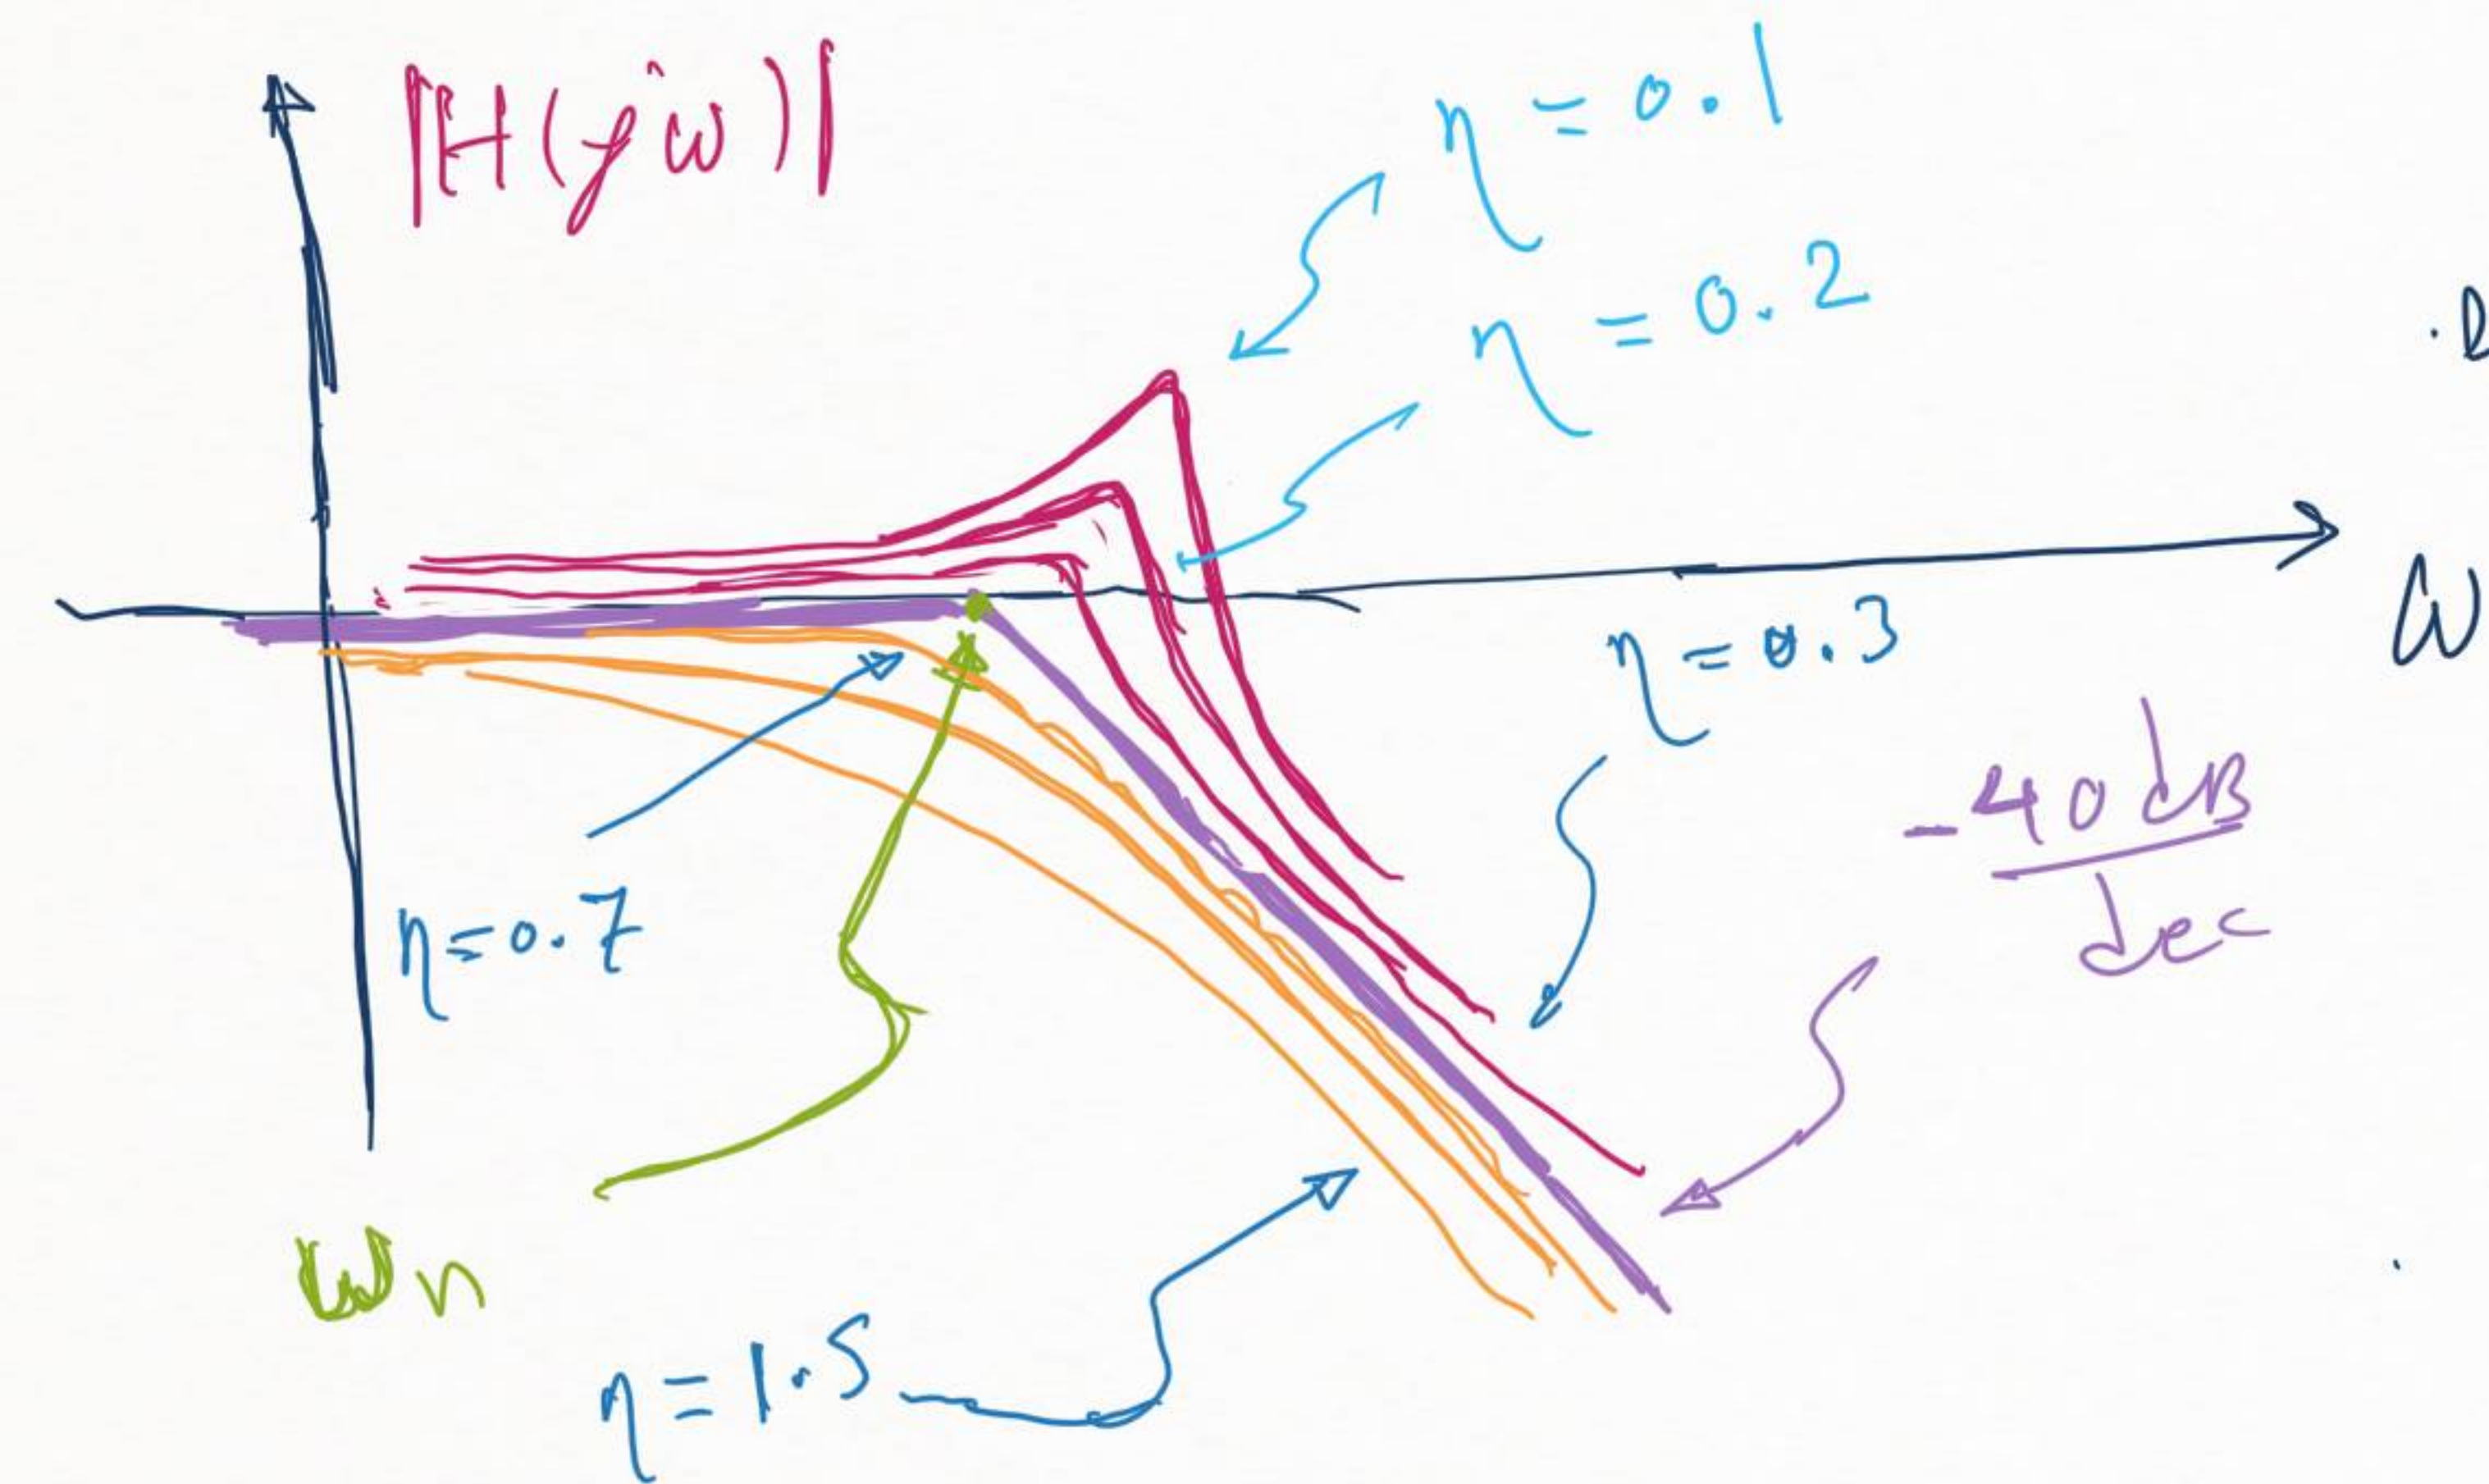 |H(jω)|
η = 0.1
η = 0.2
η = 0.3
ω
-40 dB
dec
η = 0.7
ωn
η = 1.5